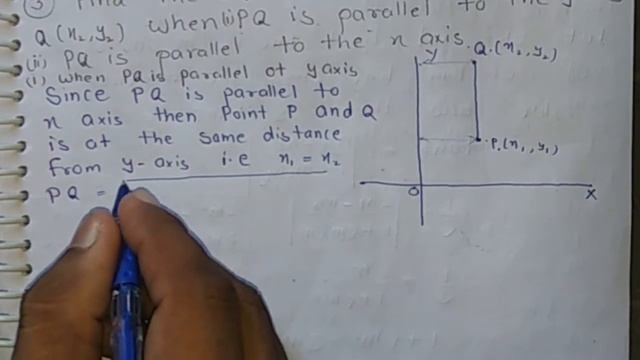 ③ Find the
Q (x₂, y₂) when(i) PQ is parallel to the y
(ii) PQ is parallel to the x axis.
(i) when PQ is parallel of y axis
Since PQ is parallel to
x axis then Point P and Q
is at the same distance
from y-axis i.e x₁ = x₂
PQ =
y
Q.(x₂, y₂)
.P.(x₁, y₁)
O
X